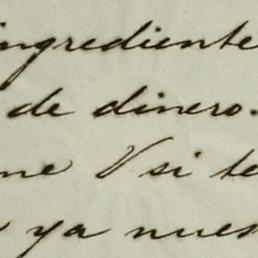 ingrediente
de dinero.
me V si te
ya nues